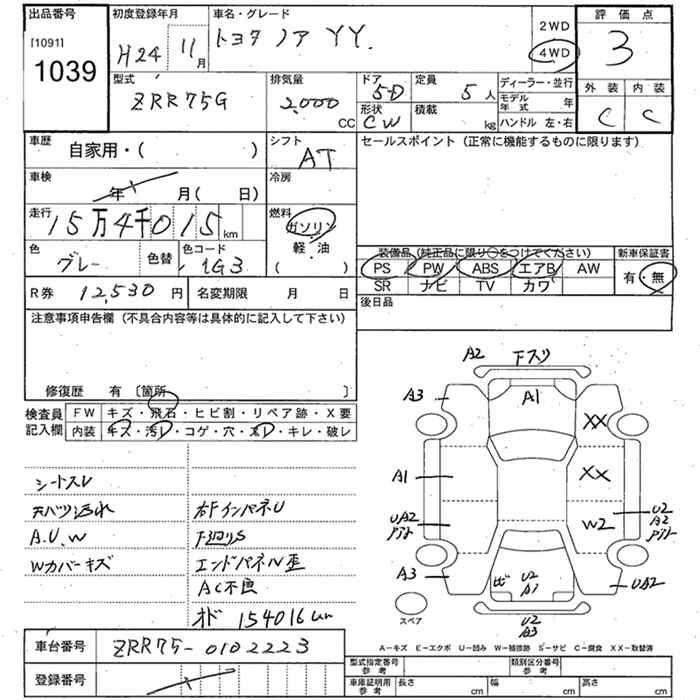 出品番号
[1091]
1039
初度登録年月
H24 11月
車名・グレード
トヨタ ノア YY.
2WD
4WD
評価点
3
外装 内装
C C
型式
ZRR75G
排気量
2,000 CC
ドア
5-D
形状
CW
定員
5 人
積載
kg
ディーラー・並行
モデル年式 年
ハンドル 左・右
車歴
自家用・( )
シフト
AT
セールスポイント (正常に機能するものに限ります)
車検
年 月( 日)
冷房
走行
15万4千015 km
燃料
ガソリン
軽・油
( )
色
グレー
色替
色コード
1G3
装備品 (純正品に限り○をつけてください)
PS PW ABS エアB AW
SR ナビ TV カワ
新車保証書
有・無
R券 12,530 円
名変期限 月 日
後日品
注意事項申告欄 (不具合内容等は具体的に記入して下さい)
修復歴 有 〔箇所 〕
検査員記入欄
FW キズ・飛石・ヒビ割・リペア跡・X要
内装 キズ・汚レ・コゲ・穴・スレ・キレ・破レ
シートスレ
天バツ汚れ
A.U.W
Wカバーキズ
右FインパネU
下廻りS
エンドパネル歪
AC不良
オド 154016km
A2 下スリ
A3
A1
XX
A1
XX
UA2
W2
U2
A2
A3
U2
A1
UA2
スペア
U2
A3
A-キズ E-エクボ U-凹み W-補修跡 S-サビ C-腐食 XX-取替済
車台番号 ZRR75-0102223
登録番号
型式指定番号 参考
類別区分番号 参考
車庫証明用 参考
長さ cm
幅 cm
高さ cm